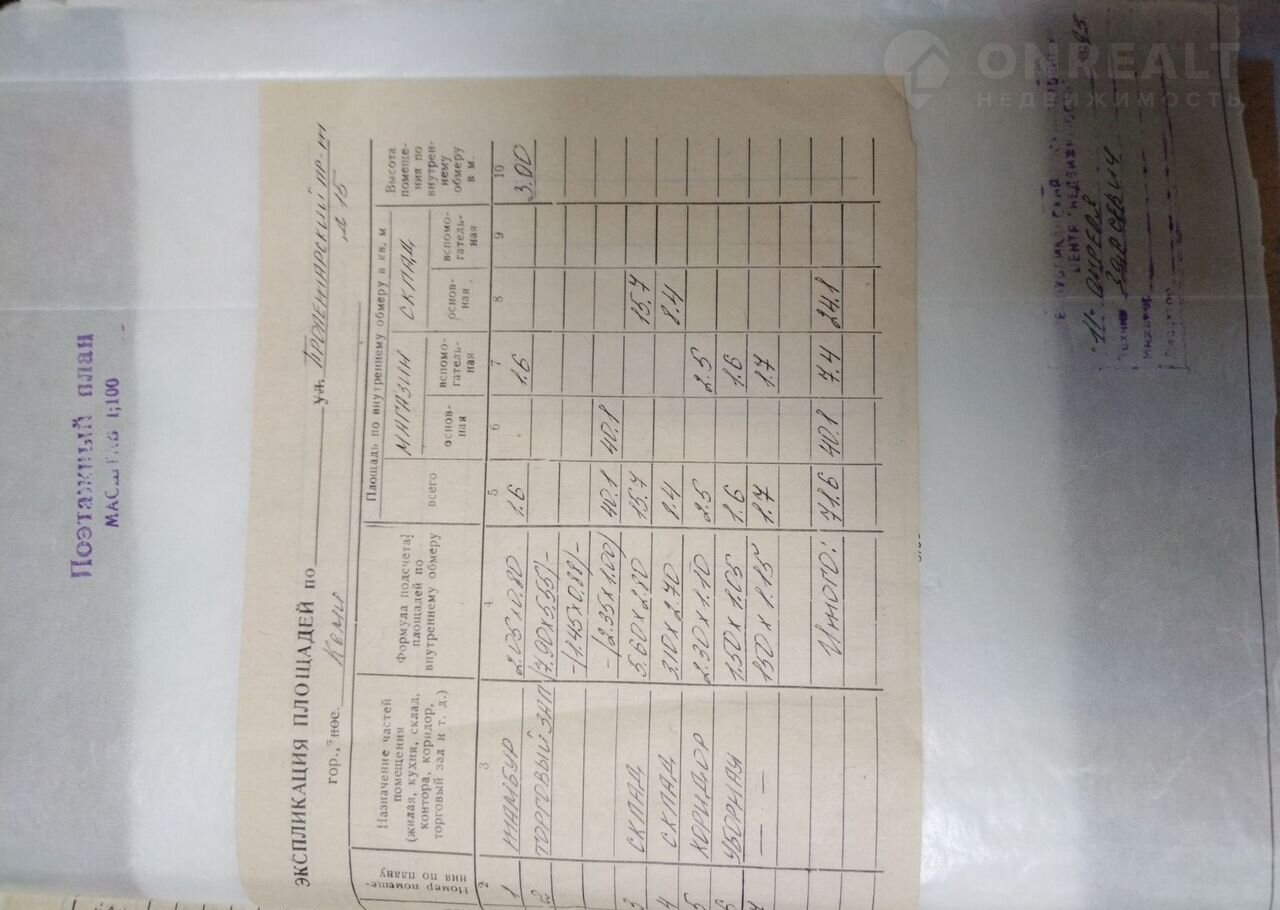 Поэтажный план
МАСШТАБ 1:100
ЭКСПЛИКАЦИЯ ПЛОЩАДЕЙ по ул. Пролетарский пр-т
гор., пос. Кемь д 15
Номер помеще-
ния по плану
Назначение частей
помещения
(жилая, кухня, склад,
контора, коридор,
торговый зал и т. д.)
Формула подсчета
площадей по
внутреннему обмеру
Площадь по внутреннему обмеру в кв. м
всего
МАГАЗИН
основ-
ная
вспомо-
гатель-
ная
СКЛАД
основ-
ная
вспомо-
гатель-
ная
Высота
помеще-
ния по
внутрен-
нему
обмеру
в м.
2 3 4 5 6 7 8 9 10
1 ТАМБУР 2.05 x 0.80 1.6 1.6 3.00
2 ТОРГОВЫЙ ЗАЛ (7.90 x 5.55)-
-(1.45 x 0.88)-
-(2.35 x 1.00) 40.1 40.1
3 СКЛАД 5.60 x 2.80 15.7 15.7
4 СКЛАД 3.10 x 2.70 8.4 8.4
5 КОРИДОР 2.30 x 1.10 2.5 2.5
6 УБОРНАЯ 1.50 x 1.05 1.6 1.6
7 — — — 1.50 x 1.15 1.7 1.7
Итого: 71.6 40.1 7.4 24.1
ЦЕНТР НЕДВИЖИМОСТ
11 апреля
Техник
ONREALT
НЕДВИЖИМОСТЬ